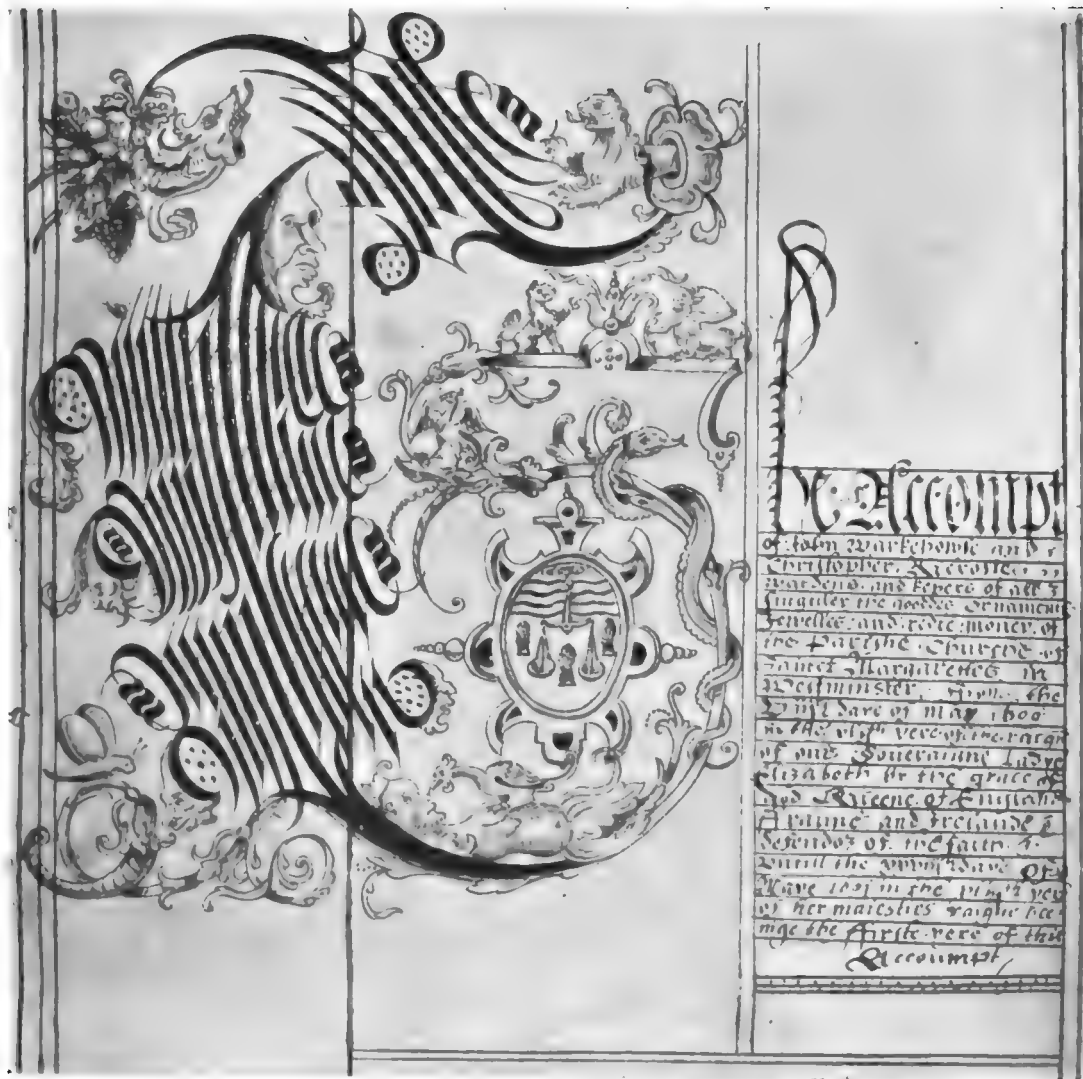 The Accompt
of John Warkehowse and
Christopher
wardens and kepers of all &
singuler the goodes Ornament
Jewelles and redie money of
the Parishe Churche of
Sainct Margarettes in
Westminster. From the
daye of may 1600
in the yere of the raign
of our Soveraigne Ladye
Elizabeth by the grace of
God Queene of England
Fraunce and Irelande
defendor of the faith &
untill the daye of
Maye in the yere
of her maiesties raigne bee
inge the firste yere of this
Accoumpt